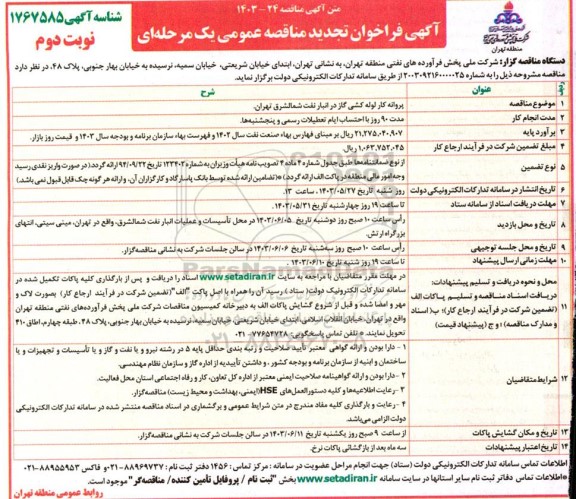 متن آگهی مناقصه ۲۴-۱۴۰۳
شناسه آگهی ۱۷۶۷۵۸۵
آگهی فراخوان تجدید مناقصه عمومی یک مرحله‌ای
نوبت دوم
منطقه تهران
دستگاه مناقصه گزار: شرکت ملی پخش فرآورده های نفتی منطقه تهران، به نشانی تهران، ابتدای خیابان شریعتی، خیابان سمیه، نرسیده به خیابان بهار جنوبی، پلاک ۴۸، در نظر دارد
مناقصه مشروحه ذیل را به شماره ۲۰۰۳۰۹۲۱۶۰۰۰۰۰۲۵ از طریق سامانه تدارکات الکترونیکی دولت برگزار نماید.
ردیف عنوان شرح
۱ موضوع مناقصه پروانه کار لوله کشی گاز در انبار نفت شمالشرق تهران.
۲ مدت انجام کار مدت ۹۰ روز با احتساب ایام تعطیلات رسمی و پنجشنبه‌ها.
۳ برآورد پایه ۲۱,۲۷۵,۰۴۰,۹۰۷ ریال بر مبنای فهارس بهاء صنعت نفت سال ۱۴۰۲ و فهرست بهاء سازمان برنامه و بودجه سال ۱۴۰۳ و قیمت روز بازار.
۴ مبلغ تضمین شرکت در فرآیند ارجاع کار ۱,۰۶۳,۷۵۲,۰۴۵ ریال
۵ نوع تضمین از نوع ضمانتنامه‌ها طبق جدول شماره ۴ ماده ۴ تصویب نامه هیأت وزیران به شماره ۱۲۳۴۰۲ تاریخ ۹۴/۰۹/۲۲ ارائه گردد. (در صورت واریز نقدی رسید
وجه امور مالی منطقه در پاکت الف ارائه گردد.) «(تضامین ارائه شده توسط بانک پاسارگاد و کارگزاران آن، و ارائه هر گونه چک قابل قبول نمی باشد)
۶ تاریخ انتشار در سامانه تدارکات الکترونیکی دولت روز شنبه تاریخ ۱۴۰۳/۰۵/۲۷، ساعت ۱۳.
۷ مهلت دریافت اسناد از سامانه ستاد تا ساعت ۱۹ روز چهارشنبه تاریخ ۱۴۰۳/۰۵/۳۱.
۸ تاریخ و محل بازدید رأس ساعت ۱۰ صبح روز دوشنبه تاریخ ۱۴۰۳/۰۶/۰۵ در محل تأسیسات و عملیات انبار نفت شمالشرق، واقع در تهران، مینی سیتی، انتهای
بزرگراه ارتش.
۹ تاریخ و محل جلسه توجیهی رأس ساعت ۱۰ صبح روز سه‌شنبه تاریخ ۱۴۰۳/۰۶/۰۶ در سالن جلسات شرکت به نشانی مناقصه‌گزار.
۱۰ مهلت زمانی ارسال پیشنهاد تا ساعت ۱۹ روز شنبه تاریخ ۱۴۰۳/۰۶/۱۰.
۱۱ محل و نحوه دریافت و تسلیم پیشنهادات:
دریافت اسناد مناقصه و تسلیم پاکات الف
(تضمین شرکت در فرآیند ارجاع کار)؛ ب (اسناد
و مدارک مناقصه)؛ و ج (پیشنهاد قیمت)
در مهلت مقرر متقاضیان با مراجعه به سایت www.setadiran.ir اسناد را دریافت و پس از بارگذاری کلیه پاکات تکمیل شده در
سامانه تدارکات الکترونیکی دولت (ستاد)، رسید آن را همراه با اصل پاکت "الف" (تضمین شرکت در فرآیند ارجاع کار) بصورت لاک و
مهر و امضا شده و قبل از شروع گشایش پاکات الف به دبیرخانه کمیسیون مناقصات شرکت ملی پخش فرآورده‌های نفتی منطقه تهران
واقع در تهران، خیابان انقلاب اسلامی، ابتدای خیابان شریعتی، خیابان سمیه، نرسیده به خیابان بهار جنوبی، پلاک ۴۸، طبقه چهارم، اطاق ۴۱۰
تحویل نمایند. «تلفن تماس پاسخگویی: ۷۷۶۵۴۷۲۸- ۰۲۱»
۱۲ شرایط متقاضیان
۱ - دارا بودن و ارائه گواهی معتبر تأیید صلاحیت و رتبه بندی حداقل پایه ۵ در رشته نیرو و یا نفت و گاز و یا تأسیسات و تجهیزات و یا
ساختمان و ابنیه از سازمان برنامه و بودجه کشور، و داشتن تأییدیه از اداره گاز و سازمان نظام مهندسی.
۲- دارا بودن و ارائه گواهینامه صلاحیت ایمنی معتبر از اداره کل تعاون، کار و رفاه اجتماعی استان محل فعالیت.
۳- رعایت اطلاعیه‌ها و کلیه دستورالعمل‌های HSE (ایمنی، بهداشت و محیط زیست) مناقصه‌گزار.
۴- رعایت و بارگذاری کلیه مفاد مندرج در متن شرایط عمومی و برگشماری در اسناد مناقصه منتشر شده در سامانه تدارکات الکترونیکی
دولت الزامی می‌باشد.
۱۳ تاریخ و مکان گشایش پاکات از ساعت ۹ صبح روز یکشنبه تاریخ ۱۴۰۳/۰۶/۱۱ در سالن جلسات شرکت به نشانی مناقصه‌گزار.
۱۴ تاریخ اعتبار پیشنهادات سه ماه بعد از بازگشائی پاکات نرخ.
اطلاعات تماس سامانه تدارکات الکترونیکی دولت (ستاد) جهت انجام مراحل عضویت در سامانه: مرکز تماس: ۱۴۵۶ دفتر ثبت نام: ۸۸۹۶۹۷۳۷-۰۲۱ و فاکس ۸۸۹۵۵۹۵۳-۰۲۱
«اطلاعات تماس دفاتر ثبت نام سایر استانها در سایت سامانه www.setadiran.ir بخش "ثبت نام / پروفایل تأمین کننده/ مناقصه‌گر" موجود است.
روابط عمومی منطقه تهران